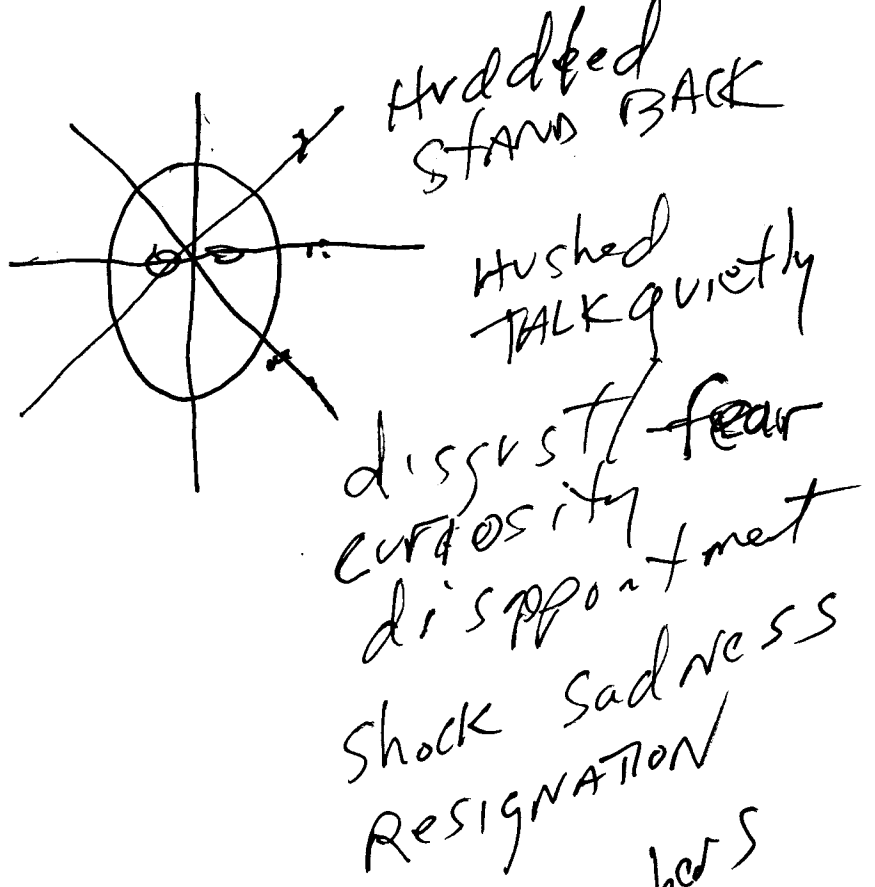 Huddled
STAND BACK
Hushed
TALK quietly
disgust/fear
curiosity
disppontment
Shock Sadness
RESIGNATION